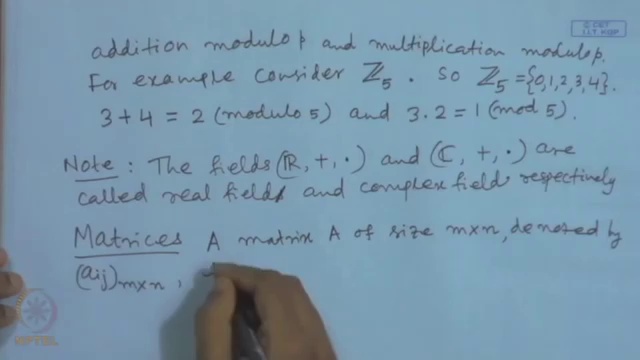 © CET
I.I.T. KGP
addition modulo p and multiplication modulo p.
For example consider ℤ₅. So ℤ₅ = {0,1,2,3,4}.
3+4 = 2 (modulo 5) and 3.2 = 1 (mod 5).
Note : The fields (ℝ, +, ·) and (ℂ, +, ·) are
called real field and complex field respectively
Matrices A matrix A of size m×n, denoted by
(aij)m×n,
NPTEL